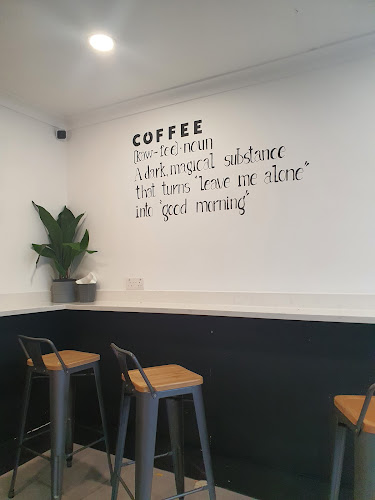 COFFEE
(kaw-fee)·noun
A dark, magical substance
that turns "leave me alone"
into "good morning"